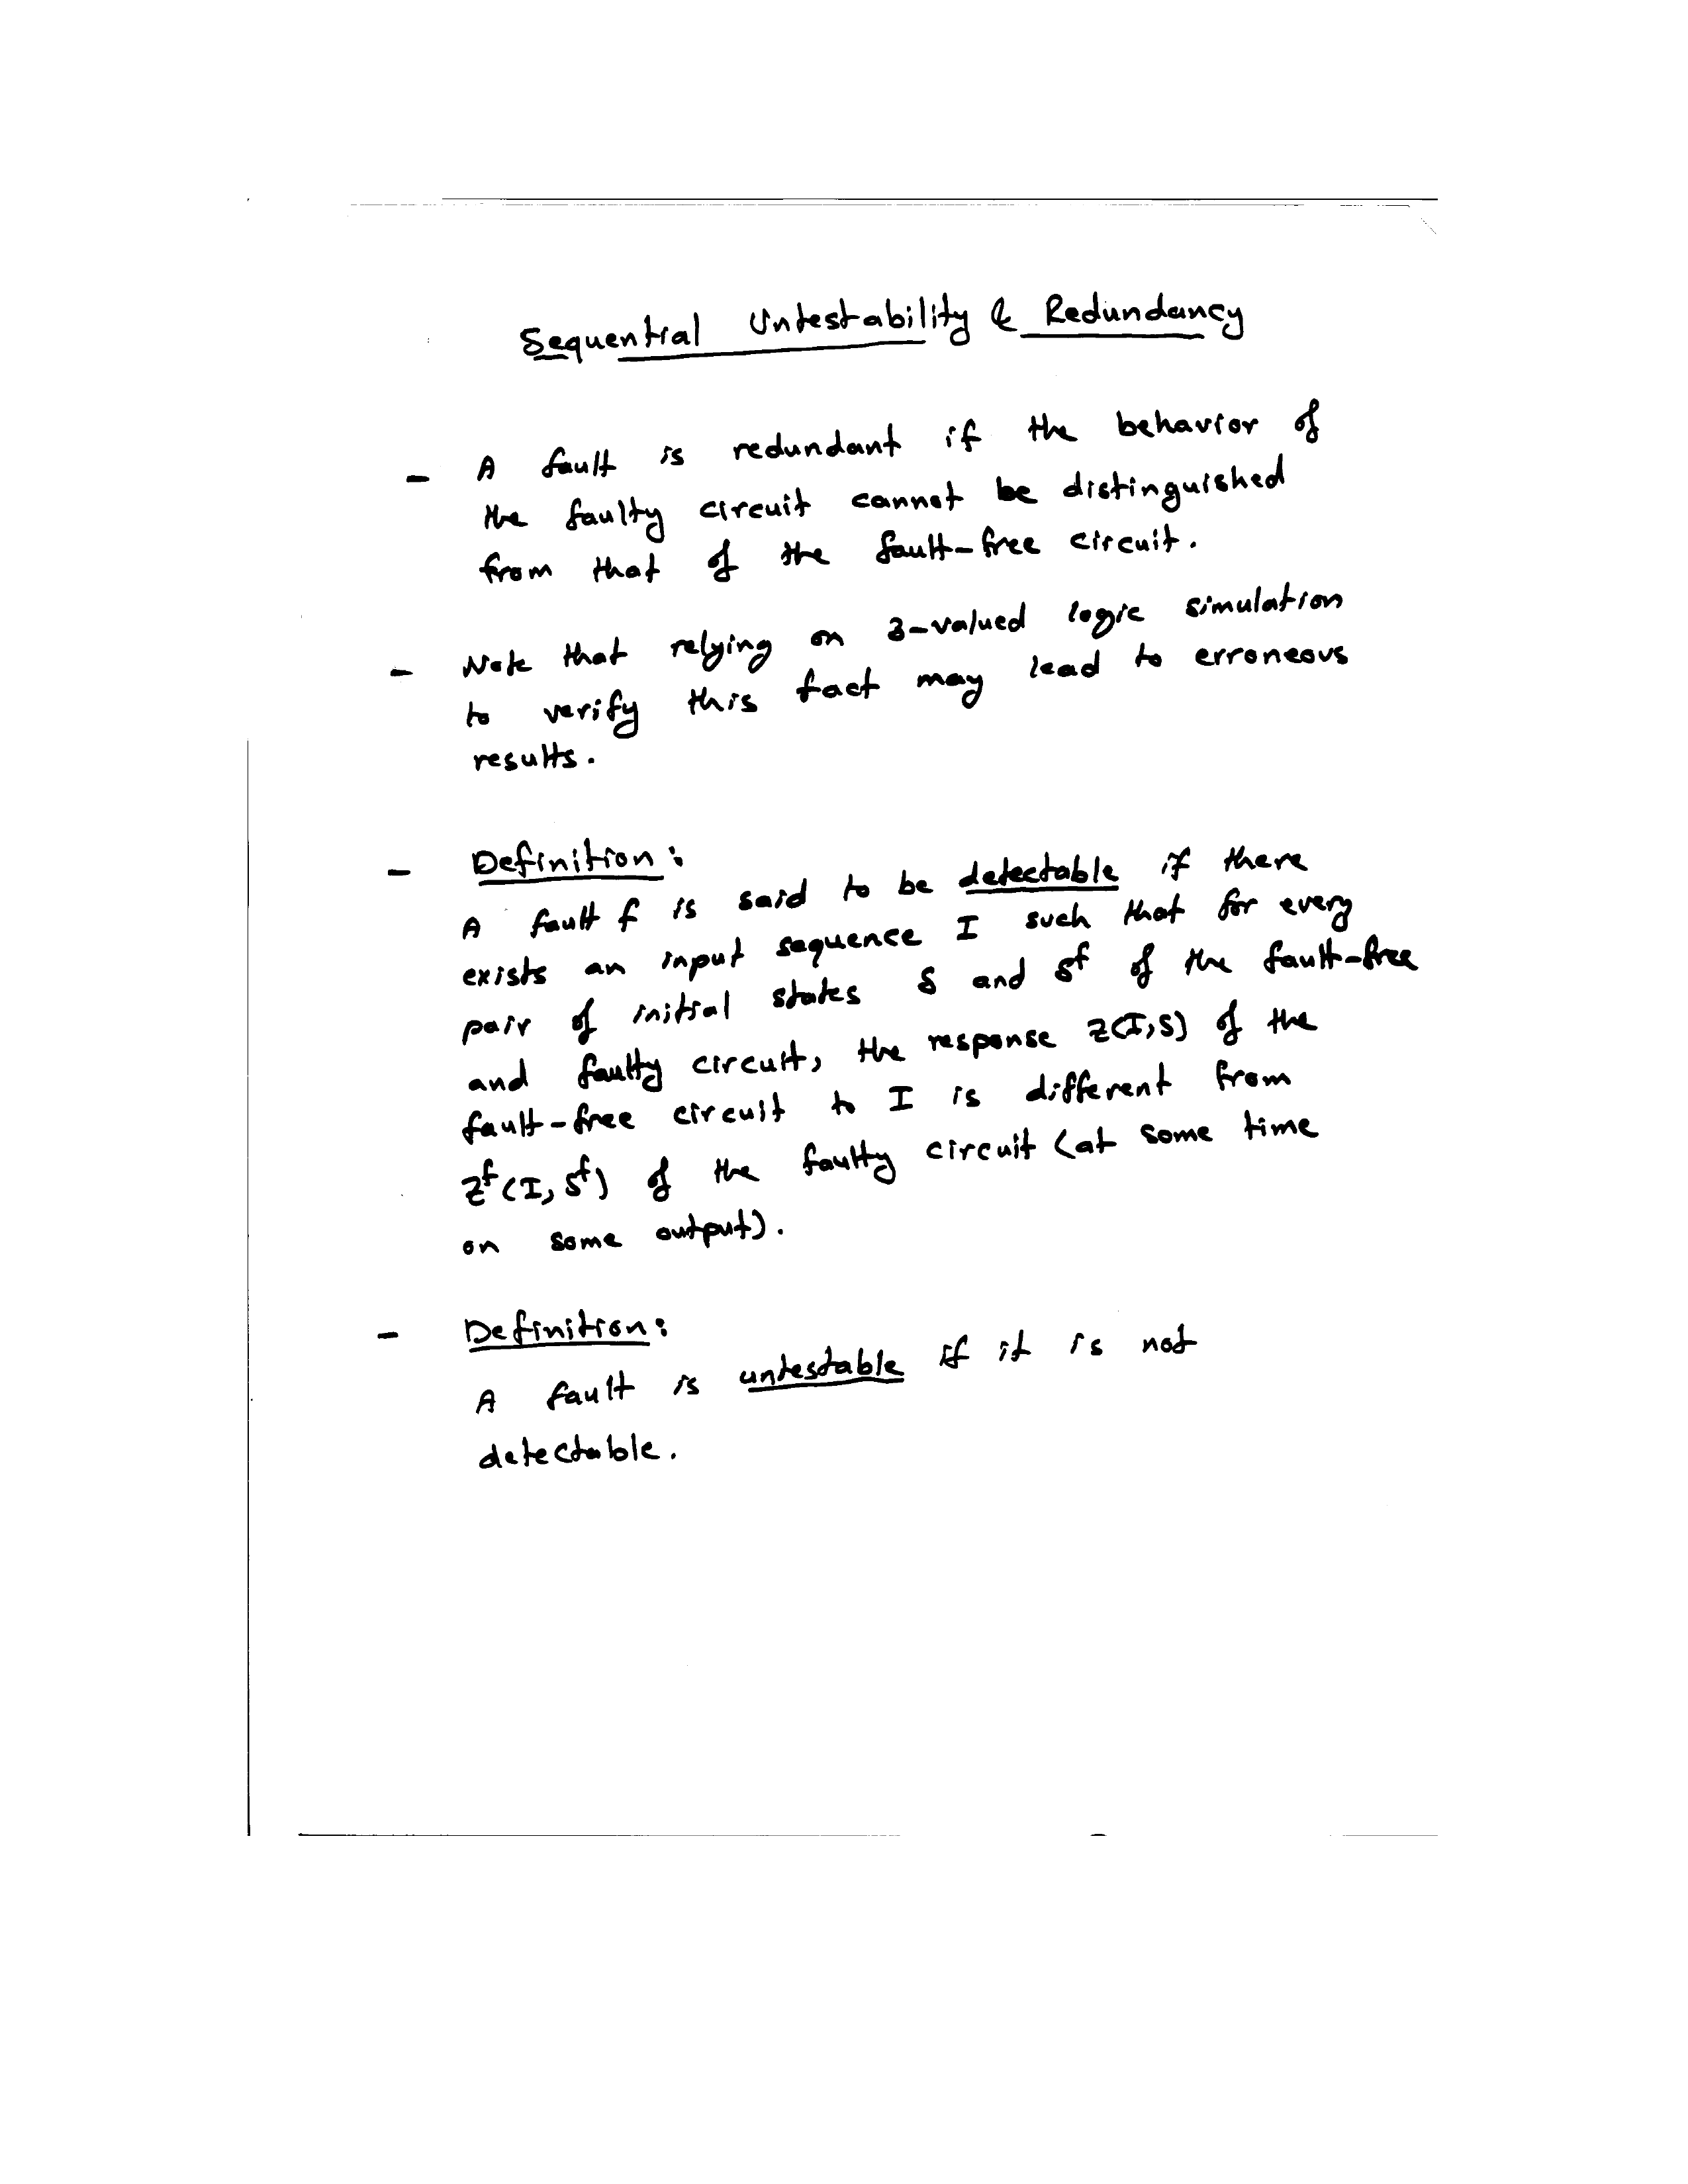 Sequential Untestability & Redundancy
- A fault is redundant if the behavior of
the faulty circuit cannot be distinguished
from that of the fault-free circuit.
- Note that relying on 3-valued logic simulation
to verify this fact may lead to erroneous
results.
- Definition:
A fault f is said to be detectable if there
exists an input sequence I such that for every
pair of initial states S and S^f of the fault-free
and faulty circuit, the response Z(I,S) of the
fault-free circuit to I is different from
Z^f(I, S^f) of the faulty circuit (at some time
on some output).
- Definition:
A fault is untestable if it is not
detectable.